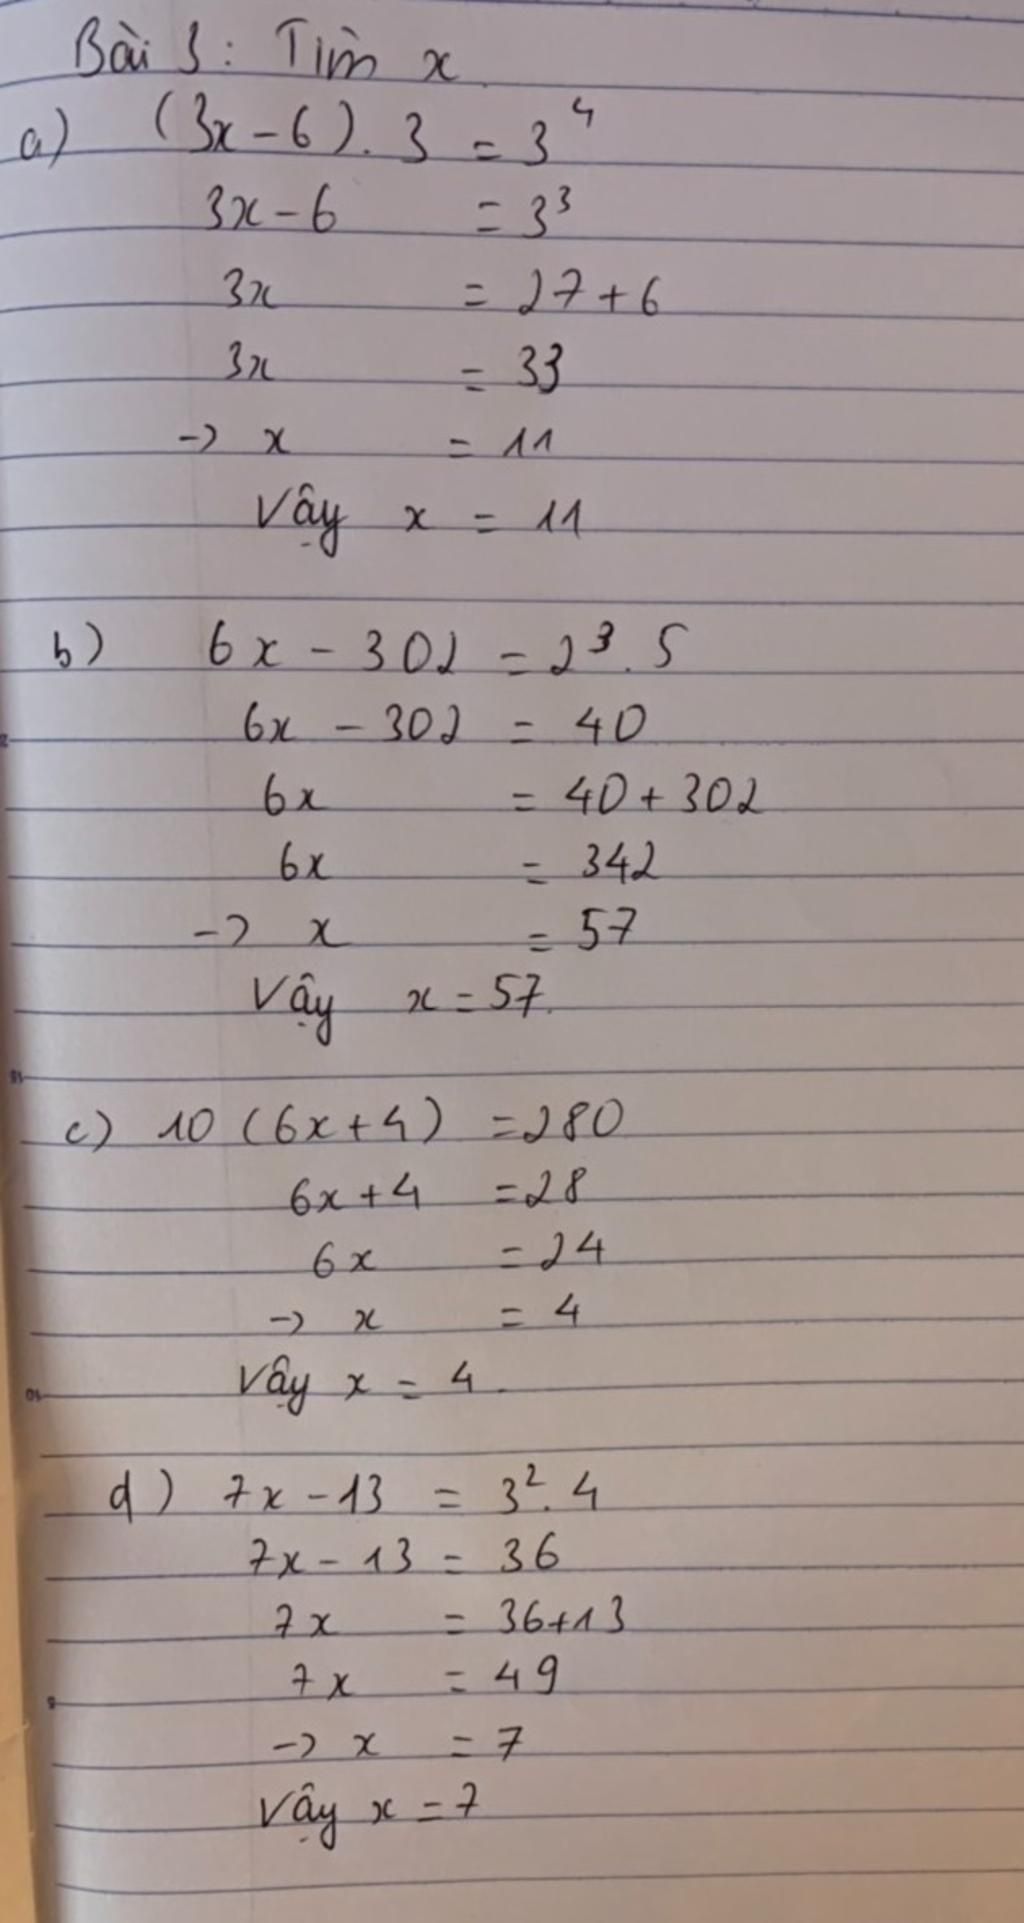 Bài 3: Tìm x
a) (3x-6). 3 = 3⁴
3x-6 = 3³
3x = 27+6
3x = 33
-> x = 11
Vậy x = 11
b) 6x - 302 = 2³. 5
6x - 302 = 40
6x = 40+302
6x = 342
-> x = 57
Vậy x = 57.
c) 10 (6x+4) = 280
6x+4 = 28
6x = 24
-> x = 4
Vậy x = 4.
d) 7x -13 = 3². 4
7x - 13 = 36
7x = 36+13
7x = 49
-> x = 7
Vậy x = 7